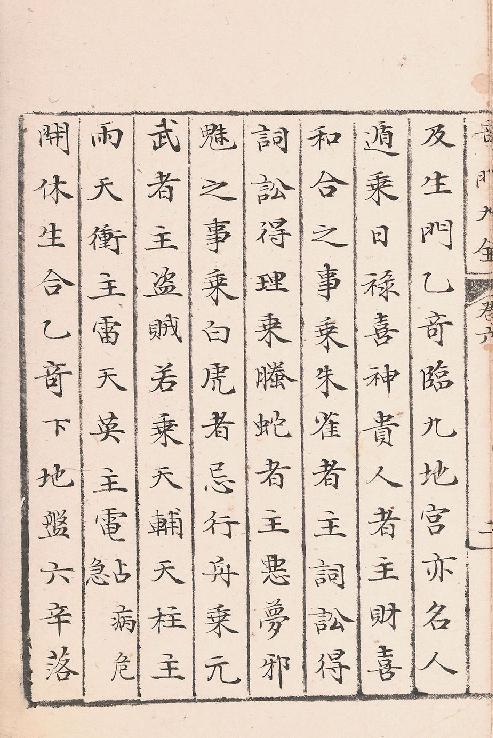 及生門乙奇臨九地宮亦名人
遁乘日祿喜神貴人者主財喜
和合之事乘朱雀者主詞訟得
詞訟得理乘騰蛇者主惡夢邪
魅之事乘白虎者忌行舟乘元
武者主盜賊若乘天輔天柱主
雨天衝主雷天英主電占病危急
開休生合乙奇下地盤六辛落